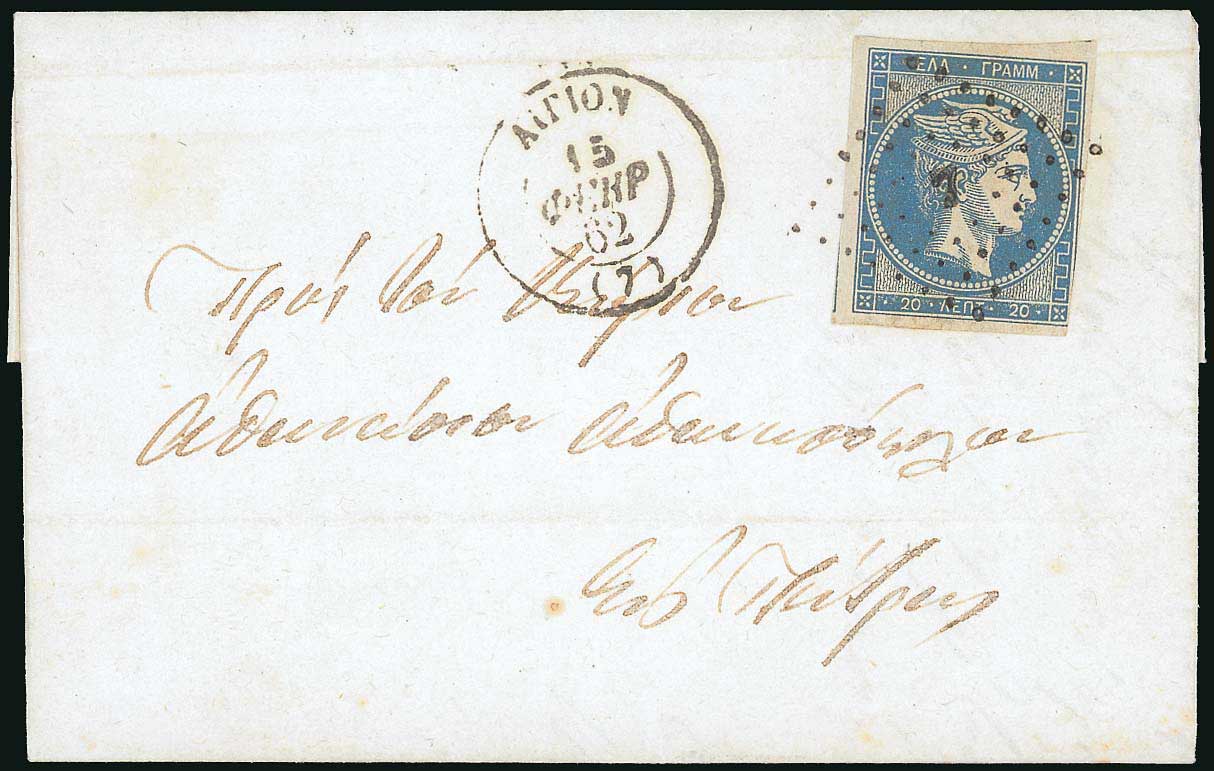 ΕΛΛ · ΓΡΑΜΜ
20 · ΛΕΠΤ · 20
ΑΙΓΙΟΝ
15
ΦΕΒΡ
62
(7)
Πρὸς τὸν Κύριον
Ἀθανάσιον Ἀθανασόπουλον
εἰς Πάτρας